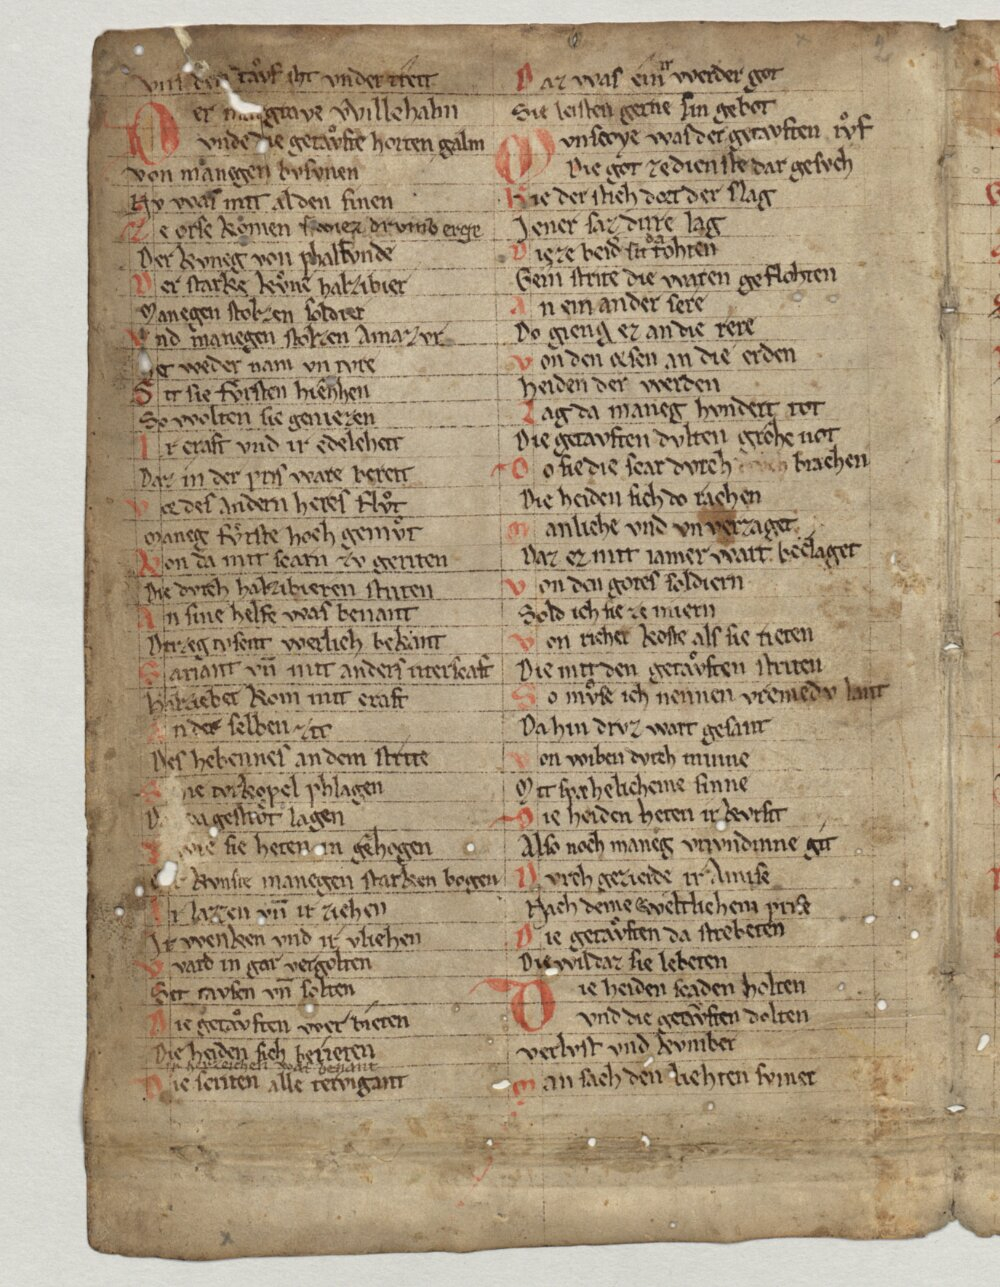 vnd den tavf iht vnder stett
er margrave vvillehalm
vnde die getaͮfte horten galm
von manegen bvsvnen
Nv was mit al den sinen
Ze orse komen
Der kvneg von phalfvnde
Der starke kvne halzibier
Manegen stolzen soldier
vnd manegen stolzen Amazvr
er weder nam vn tvre
Sit sie fvrsten hiezhen
So wolten sie geniezen
Ir craft vnd ir edelcheit
Daz in der pris ware bereit
vz des andern heres flvͦt
Maneg fvrste hoch gemvͦt
Kon da mit scarn zv geriten
Die dvrch halzibieren striten
An sine helfe was benant
Drizeg tvsent werlich bekant
Sariant vn̄ mit anders riterscaft
Halzebier kom mit craft
An der selben zit
Des hebennes an dem strite
Sie torkopel phlagen
Da gestrovt lagen
Swie sie heten in gehogen
Ir kvnste manegen starken bogen
Ir lazen vn̄ ir ziehen
Ir wenken vnd ir vliehen
vvard in gar vergolten
Set tavsen vn̄ solten
Die getaͮften wer bieten
Die heiden sich berieten
ir herzeichen wart benant
Die scriten alle tervigant
Daz was ein ir werder got
Sie leisten gerne sin gebot
Mvnscoye was der getavften rvͦf
Die got ze dienste dar gescvch
Hie der stich dort der slag
Jener saz dirre lag
Die ze beid sit tohten
Gein strite die waren geflohten
An ein ander sere
Do gieng ez an die rere
von den orsen an die erden
Heiden der werden
Lag da maneg hvndert tot
Die getavften dvlten grohe not
Do sie die scar dvrch brachen
Die heiden sich do rachen
Manliche vnd vn verzaget
Daz ez mit iamer wart beclaget
von den gotes soldiern
Sold ich sie ze miern
von richer koste als sie rieten
Die mit den getaͮften striten
So mvͦse ich nennen vremedv lant
Da hin dvrz wart gesant
von wiben dvrch minne
Mit spæhelicheme sinne
Die heiden heten ir kvrsit
Also noch maneg vrivndinne git
Dvrch gezieide ir Amise
Nach deme weltlichem prise
Die getaͮften da strebeten
Die wil daz sie lebeten
Die heiden scaden holten
vnd die getaͮften dolten
verlvst vnd kvmber
Man sach den liehten svmer